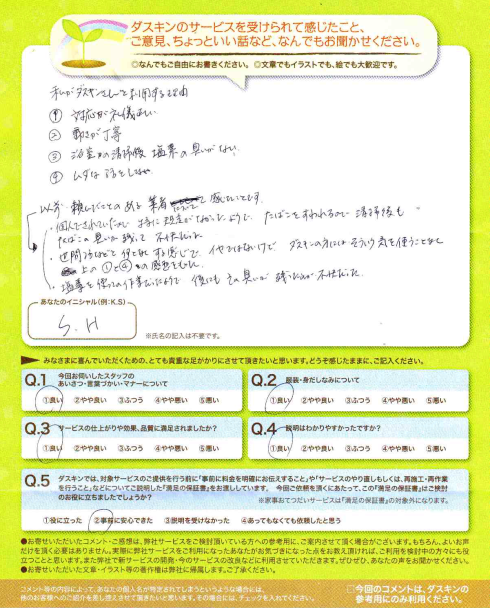 ダスキンのサービスを受けられて感じたこと、
ご意見、ちょっといい話など、なんでもお聞かせください。
◎なんでもご自由にお書きください。◎文章でもイラストでも、絵でも大歓迎です。
私がダスキンさんをお利用する理由
① 対応が礼儀正しい
② 動きが丁寧
③ 浴室の清掃後 塩素の臭いがない
④ ムダな話をしない
以前 頼んだことのある 業者 感じたことです。
たばこをすわれるので 清掃後も
たばこの臭いが残って 不快だった
世間話など イヤではないけど ダスキンの方にはそういう気を使うことなく
上の①と④の感想をもった
塩素を使っての作業だったようで 後にも その臭いが 残ったのが 不快だった
あなたのイニシャル(例:K.S)
S. H
※氏名の記入は不要です。
みなさまに喜んでいただくための、とても貴重な足がかりにさせて頂きたいと思います。どうぞ感じたままに、ご記入ください。
Q.1 今回お伺いしたスタッフの
あいさつ・言葉づかい・マナーについて
①良い ②やや良い ③ふつう ④やや悪い ⑤悪い
Q.2 服装・身だしなみについて
①良い ②やや良い ③ふつう ④やや悪い ⑤悪い
Q.3 サービスの仕上がりや効果、品質に満足されましたか?
①良い ②やや良い ③ふつう ④やや悪い ⑤悪い
Q.4 説明はわかりやすかったですか?
①良い ②やや良い ③ふつう ④やや悪い ⑤悪い
Q.5 ダスキンでは、対象サービスのご提供を行う前に「事前に料金を明確にお伝えすること」や「サービスのやり直しもしくは、再施工・再作業
を行うこと」などについてご説明した「満足の保証書」をお渡ししています。 今回ご依頼を頂くにあたって、この「満足の保証書」はご検討
のお役に立ちましたでしょうか?
※家事おてつだいサービスは「満足の保証書」の対象外になります。
①役に立った ②事前に安心できた ③説明を受けなかった ④あってもなくても依頼したと思う
●お寄せいただいたコメント・ご感想は、弊社サービスをご検討頂いている方への参考用に、ご案内させて頂く場合がございます。もちろん、よいお声
だけを頂く必要はありません。実際に弊社サービスをご利用になったあなたがお気づきになった点をお教え頂ければ、ご利用を検討中の方々にも役
立つことと思います。また弊社で新サービスの開発・今のサービスの改良などに利用させていただきます。ぜひぜひ、あなたの声をお聞かせください。
●お寄せいただいた文章・イラスト等の著作権は弊社に帰属します。ご了承ください。
コメント等の内容によって、あなたの個人名が特定されてしまうというような場合には、
他のお客様へのご紹介を差し控えさせて頂きたいと思います。その場合には、チェックを入れてください。
□今回のコメントは、ダスキンの
参考用にのみ利用ください。